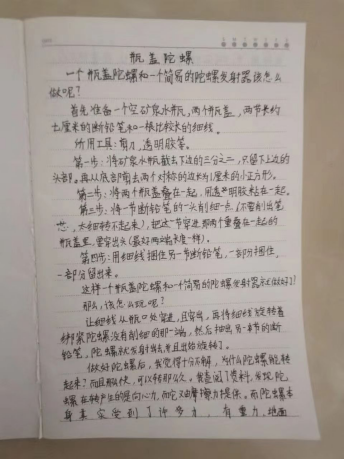 瓶盖陀螺
一个瓶盖陀螺和一个简易的陀螺发射器该怎么
做呢?
首先准备一个空矿泉水瓶,两个瓶盖,两节长约
七厘米的断铅笔和一根比较长的细线。
所用工具:剪刀,透明胶等。
第一步:将矿泉水瓶截去下边的三分之二,只留下上边的
头部。再从底部剪去两个对称的边长为1厘米的小正方形。
第二步:将两个瓶盖叠在一起,用透明胶粘在一起。
第三步:将一节断铅笔的一头削细一点(不要削出笔
芯,太细转不起来),把这一节穿进那两个重叠在一起的
瓶盖里,露穿出头(最好两端长度一样)。
第四步:用细线捆住另一节断铅笔,一部分捆住,
一部分留出来。
这样一个瓶盖陀螺和一个简易的陀螺发射器就做好了!
那么,该怎么玩呢?
让细线从瓶口处穿进,且穿出,再将细线旋转着
绑紧陀螺没有削细的那一端,然后抽出另一节的断
铅笔,陀螺就发射出去并且开始旋转了。
做好陀螺后,我觉得十分不解,为什么陀螺能转
起来?而且那么快,可以转那么久。我查阅了资料,发现陀
螺在转产生的是向心力,而它又由摩擦力提供。而陀螺本
身其实受到了许多力,有重力,地面